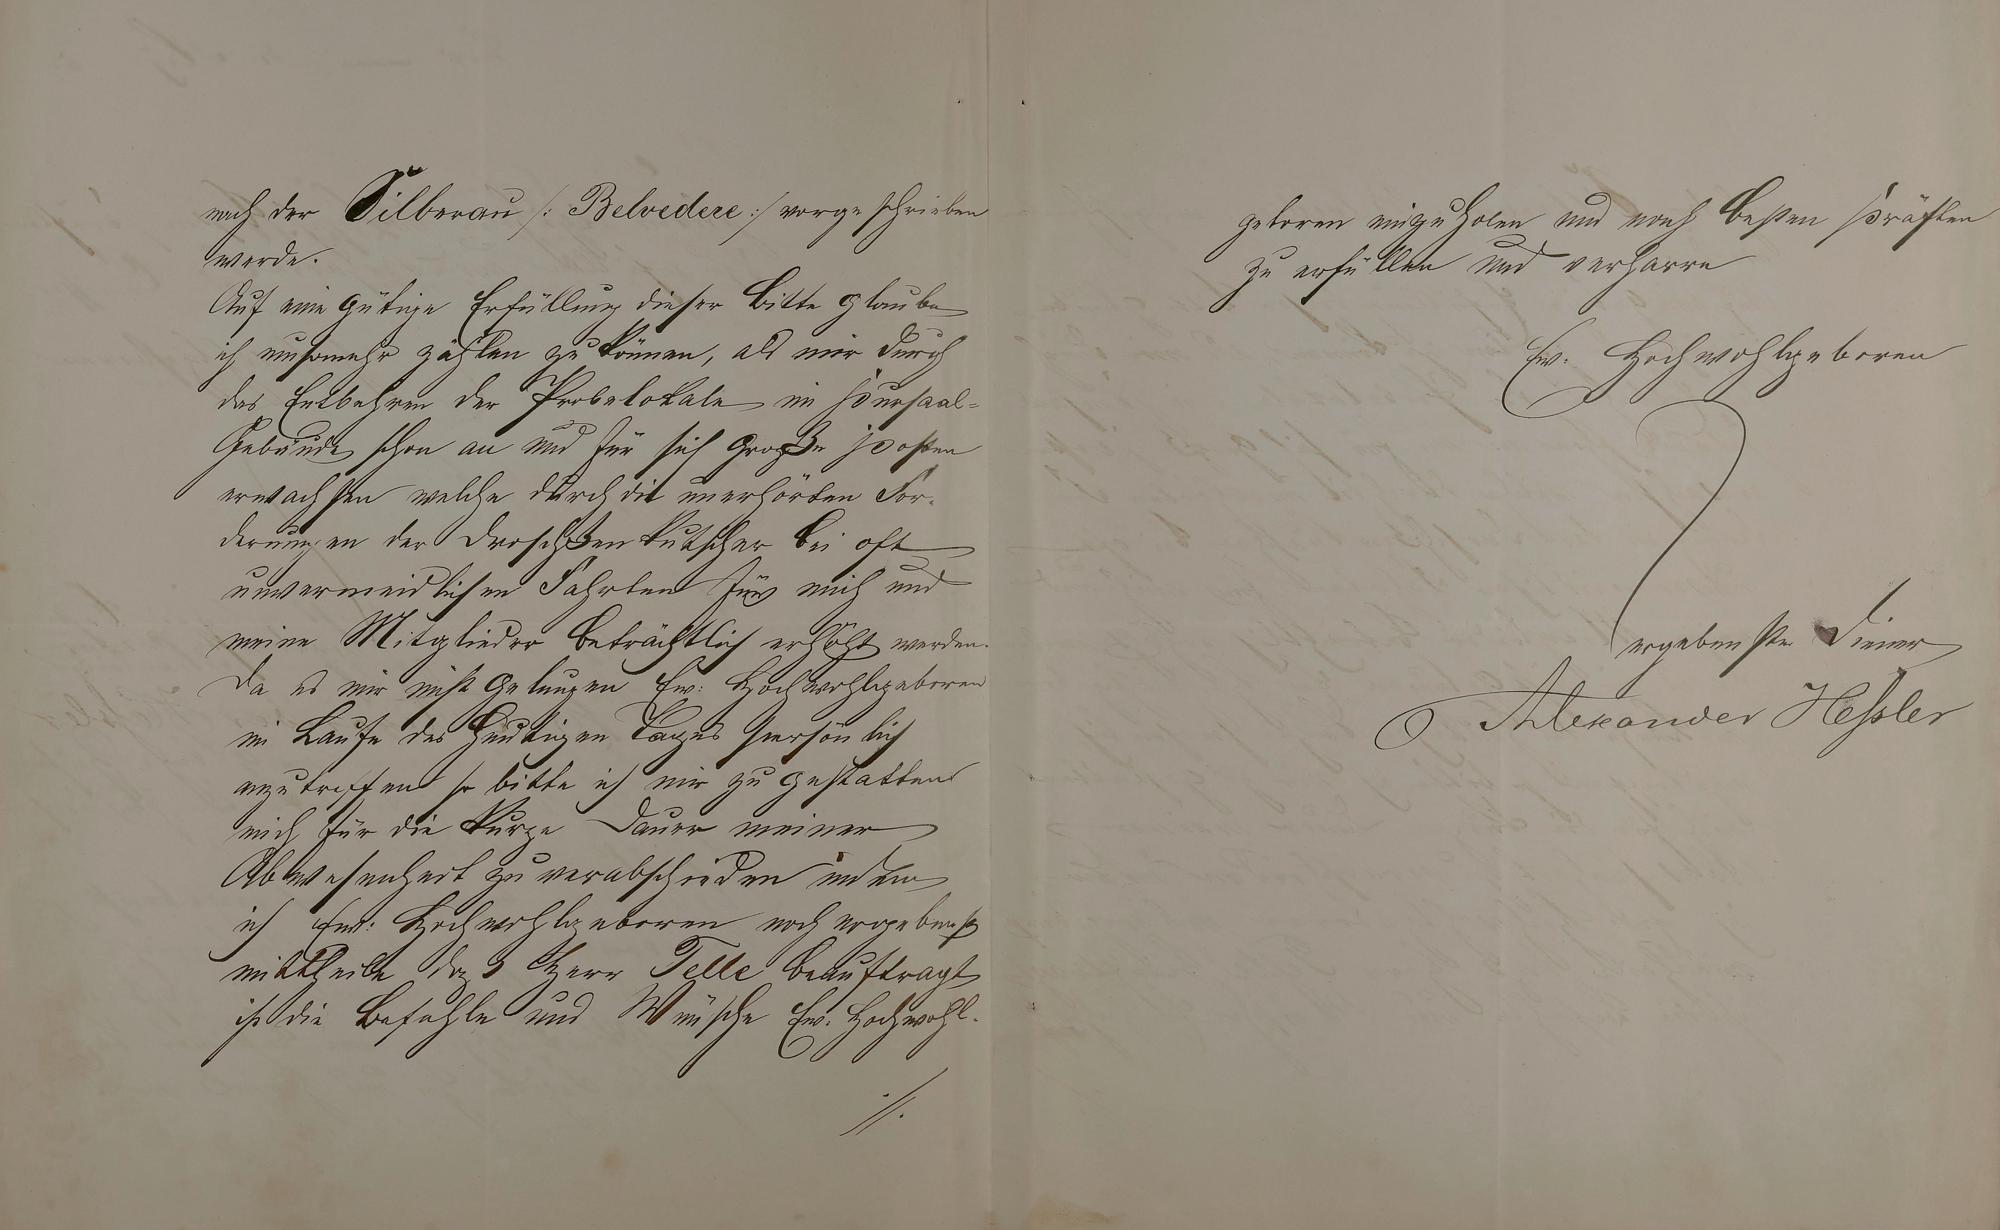 nach der Silberau /: Belvedere :/ vorgeschrieben
werde.
Auf eine gütige Erfüllung dieser Bitte glaube
ich umsomehr zählen zu können, als mir durch
das Entbehren der Probelokale im Kursaal-
Gebäude schon an und für sich große Kosten
erwachsen welche durch die unerhörten For-
derungen der Droschkenkutscher bei oft
unvermeidlichen Fahrten für mich und
meine Mitglieder beträchtlich erhöht werden.
Da es mir nicht gelungen Ew: Hochwohlgeboren
im Laufe des heutigen Tages persönlich
anzutreffen so bitte ich mir zu gestatten
mich für die kurze Dauer meiner
Abwesenheit zu verabschieden indem
ich Ew: Hochwohlgeboren noch ergebenst
mittheile daß Herr Telle beauftragt
ist die Befehle und Wünsche Ew. Hochwohl-
./.
geboren einzuholen und nach besten Kräften
zu erfüllen und verharre
Ew: Hochwohlgeboren
ergebenster Diener
Alexander Hessler